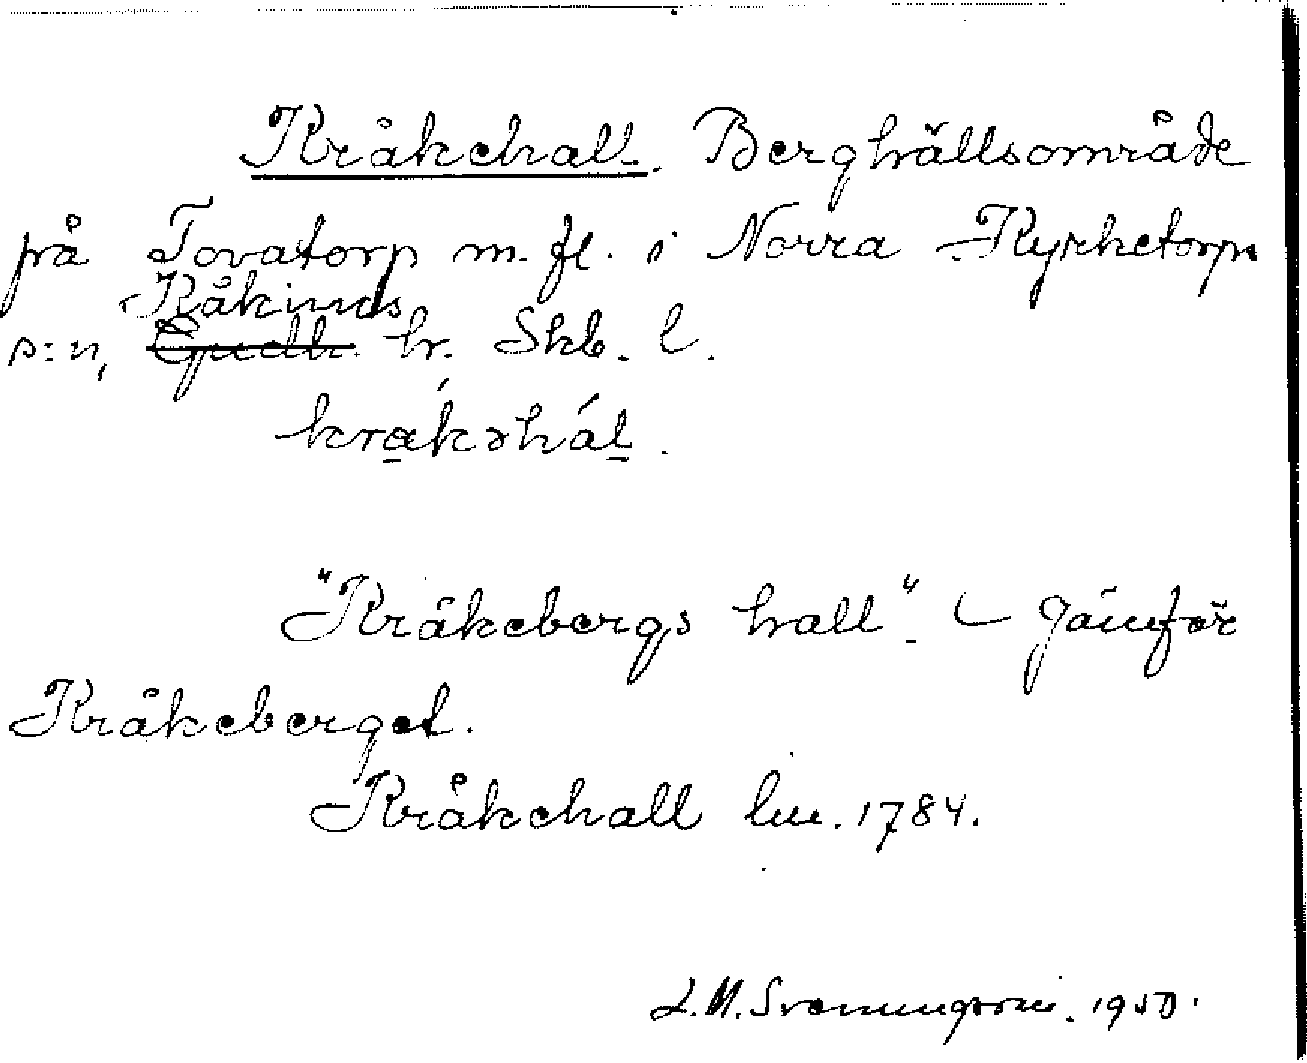 Kråkehall. Berghällsområde
på Tovatorp m. fl. i Norra Kyrketorps
Kåkinds
s:n, Gudh. hr. Skb. l.
kråkəhál.
"Kråkebergs hall". – Jämför
Kråkeberget.
Kråkehall lm. 1784.
L.M. Svenungsson. 1950.